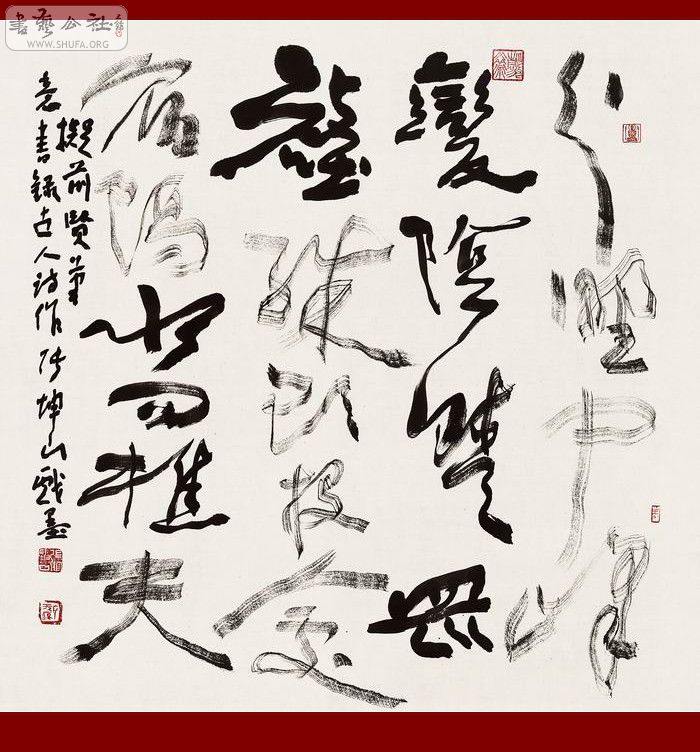 書藝公社
WWW.SHUFA.ORG
分野中峰
變陰晴眾
壑殊欲投人處
宿隔水問樵夫
擬前賢筆
意書錄古人詩作張坤山戲墨